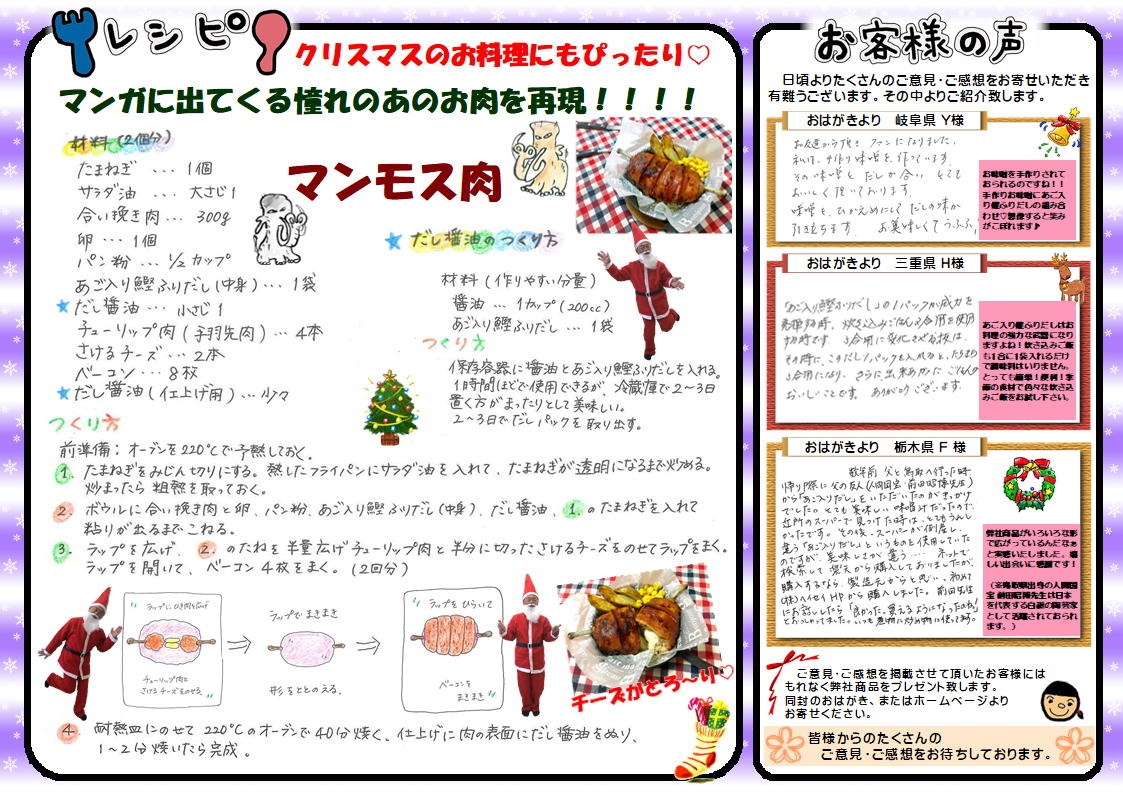 レシピ
クリスマスのお料理にもぴったり♡
マンガに出てくる憧れのあのお肉を再現！！！！
マンモス肉
材料（2個分）
たまねぎ … 1個
サラダ油 … 大さじ1
合い挽き肉 … 300g
卵 … 1個
パン粉 … 1/2カップ
あご入り鰹ふりだし（中身） … 1袋
★だし醤油 … 小さじ1
チューリップ肉（手羽先肉） … 4本
さけるチーズ … 2本
ベーコン … 8枚
★だし醤油（仕上げ用） … 少々
★だし醤油のつくり方
材料（作りやすい分量）
醤油 … 1カップ（200cc）
あご入り鰹ふりだし … 1袋
つくり方
保存容器に醤油とあご入り鰹ふりだしを入れる。
1時間ほどで使用できるが、冷蔵庫で2～3日
置く方がまったりとして美味しい。
2～3日でだしパックを取り出す。
つくり方
前準備：オーブンを220℃で予熱しておく。
1. たまねぎをみじん切りにする。熱したフライパンにサラダ油を入れて、たまねぎが透明になるまで炒める。
炒まったら粗熱を取っておく。
2. ボウルに合い挽き肉と卵、パン粉、あご入り鰹ふりだし（中身）、だし醤油、1.のたまねぎを入れて
粘りが出るまでこねる。
3. ラップを広げ、2.のたねを半量広げチューリップ肉と半分に切ったさけるチーズをのせてラップをまく。
ラップを開いて、ベーコン4枚をまく。（2回分）
ラップにひき肉を広げ
チューリップ肉と
さけるチーズをのせる。
ラップでまきまき
形をととのえる。
ラップをひらいて
ベーコンを
まきまき
チーズがとろ～り♡
4. 耐熱皿にのせて220℃のオーブンで40分焼く。仕上げに肉の表面にだし醤油をぬり、
1～2分焼いたら完成。
お客様の声
日頃よりたくさんのご意見・ご感想をお寄せいただき
有難うございます。その中よりご紹介致します。
おはがきより 岐阜県 Y様
お友達から頂き ファンになりました。
私は、手作り味噌を作っています。
その味噌とだしが合い とても
おいしく頂いております。
味噌を、ひかえめにして だしの味が
引き立ちます。 お美味しくてうふふ。
お味噌を手作りされて
おられるのですね！！
手作りお味噌にあご入
り鰹ふりだしの組み合
わせ♡想像すると笑み
がこぼれます♪
おはがきより 三重県 H様
「あご入り鰹ふりだし」の1パックが威力を
あご入り鰹ふりだしはお
料理の強力な武器になり
ますよね！炊き込みご飯
も1合に1袋入れるだけ
で調味料はいりません。
とっても簡単！便利！季
節の食材で色々な炊き込
みご飯をお試し下さい。
おはがきより 栃木県 F 様
数年前 父と鳥取の行った時
帰り際に父の友人（人間国宝・前田昭博先生）
から「あご入りだし」をいただいたのがきっかけ
でした。とても美味しい味噌汁だったので
近所のスーパーで見つけた時は、とてもうれし
かったです。その後、スーパーが倒産し、
違う「あご入りだし」というものも使用していた
のですが、美味しさが違う…。ネットで
検索して楽天から購入しておりましたが、
購入するなら、製造元からと思い、初めて
（株）ヘイセイHPから購入しました。前田先生
にお話ししたら「良かった。買えるようになったのね」
とおっしゃってました。いつも煮物に炒め物に使ってます。
弊社商品がいろいろな形
で広がっているんだなぁ
と実感いたしました。嬉
しい出会いに感謝です！
（※鳥取県出身の人間国
宝 前田昭博先生は日本
を代表する白磁の陶芸家
として活躍されておられ
ます。）
ご意見・ご感想を掲載させて頂いたお客様には
もれなく弊社商品をプレゼント致します。
同封のおはがき、またはホームページより
お寄せください。
皆様からのたくさんの
ご意見・ご感想をお待ちしております。